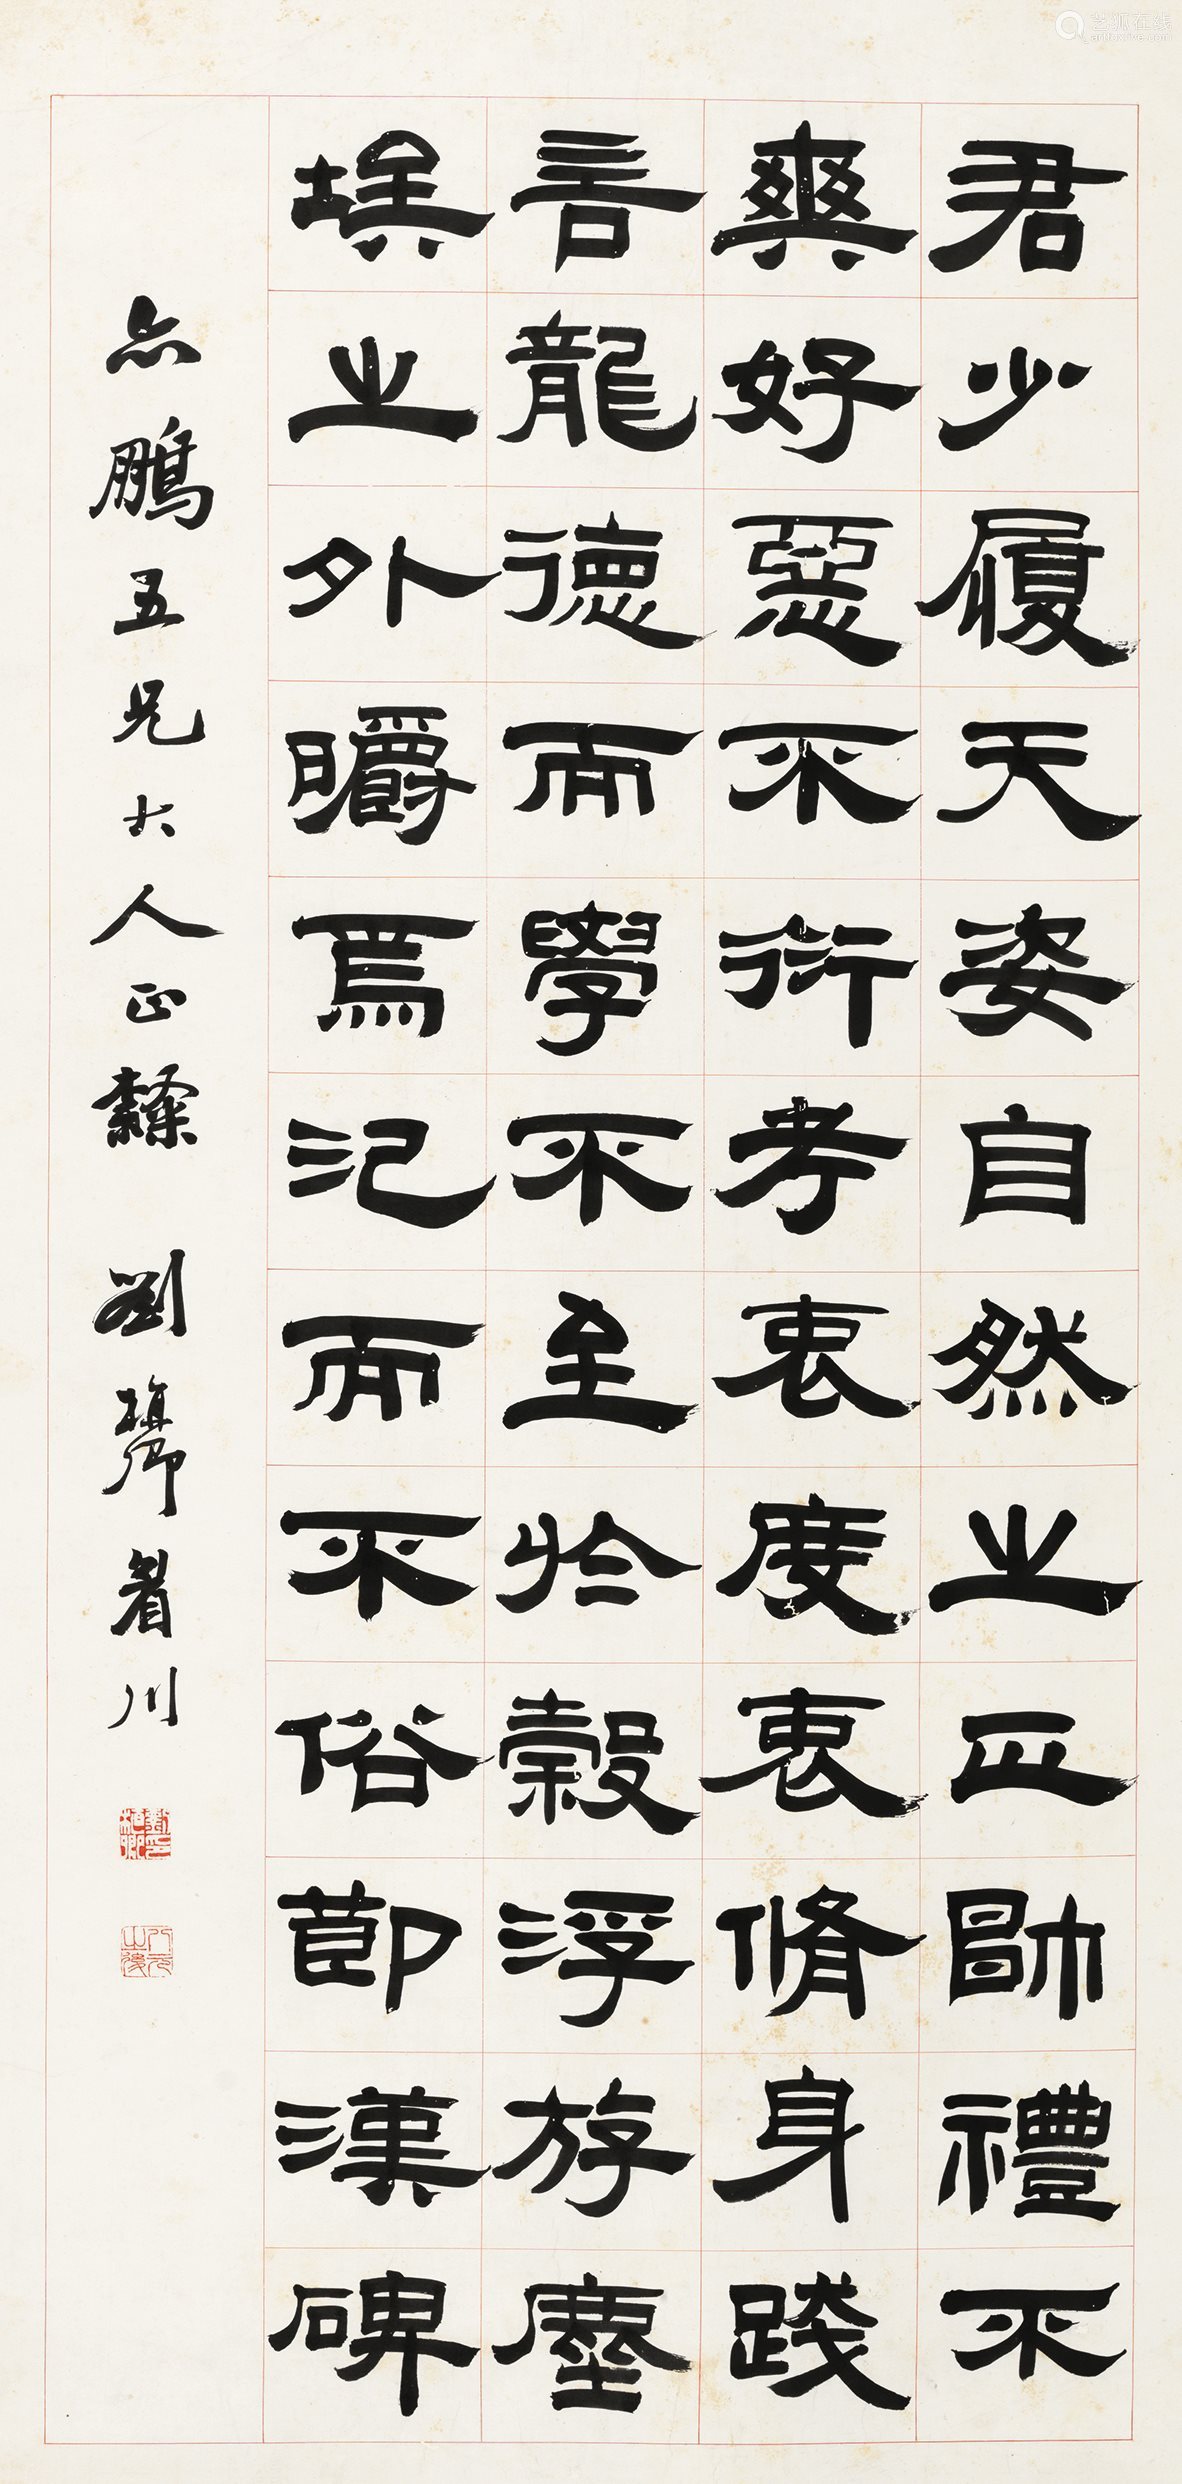 君少履天姿自然之正帥禮不
爽好惡不衍考衷度衷脩身踐
言龍德而學不至於穀浮游塵
埃之外皭焉氾而不俗節漢碑
亦鵬五兄大人正隸 劉
川
艺狐在线
artfoxlive.com